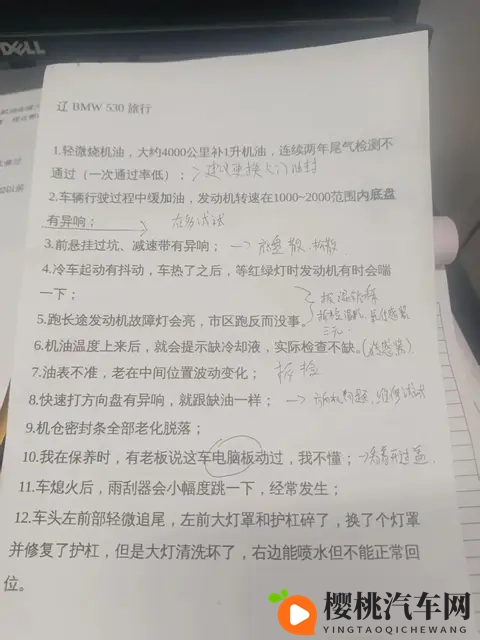 DELL
辽 BMW 530 旅行
1.轻微烧机油，大约4000公里补1升机油，连续两年尾气检测不
通过（一次通过率低）； 建议更换气门油封
2.车辆行驶过程中缓加油，发动机转速在1000~2000范围内底盘
有异响； 试试
3.前悬挂过坑、减速带有异响； 底盘散
4.冷车起动有抖动，车热了之后，等红绿灯时发动机有时会喘
一下；
5.跑长途发动机故障灯会亮，市区跑反而没事。 三元
6.机油温度上来后，就会提示缺冷却液，实际检查不缺。
7.油表不准，老在中间位置波动变化； 拆检
8.快速打方向盘有异响，就跟缺油一样； 方向机问题
9.机仓密封条全部老化脱落；
10.我在保养时，有老板说这车电脑板动过，我不懂；
11.车熄火后，雨刮器会小幅度跳一下，经常发生；
12.车头左前部轻微追尾，左前大灯罩和护杠碎了，换了个灯罩
并修复了护杠，但是大灯清洗坏了，右边能喷水但不能正常回
位。
樱桃汽车网
YINGTAOQICHEWANG